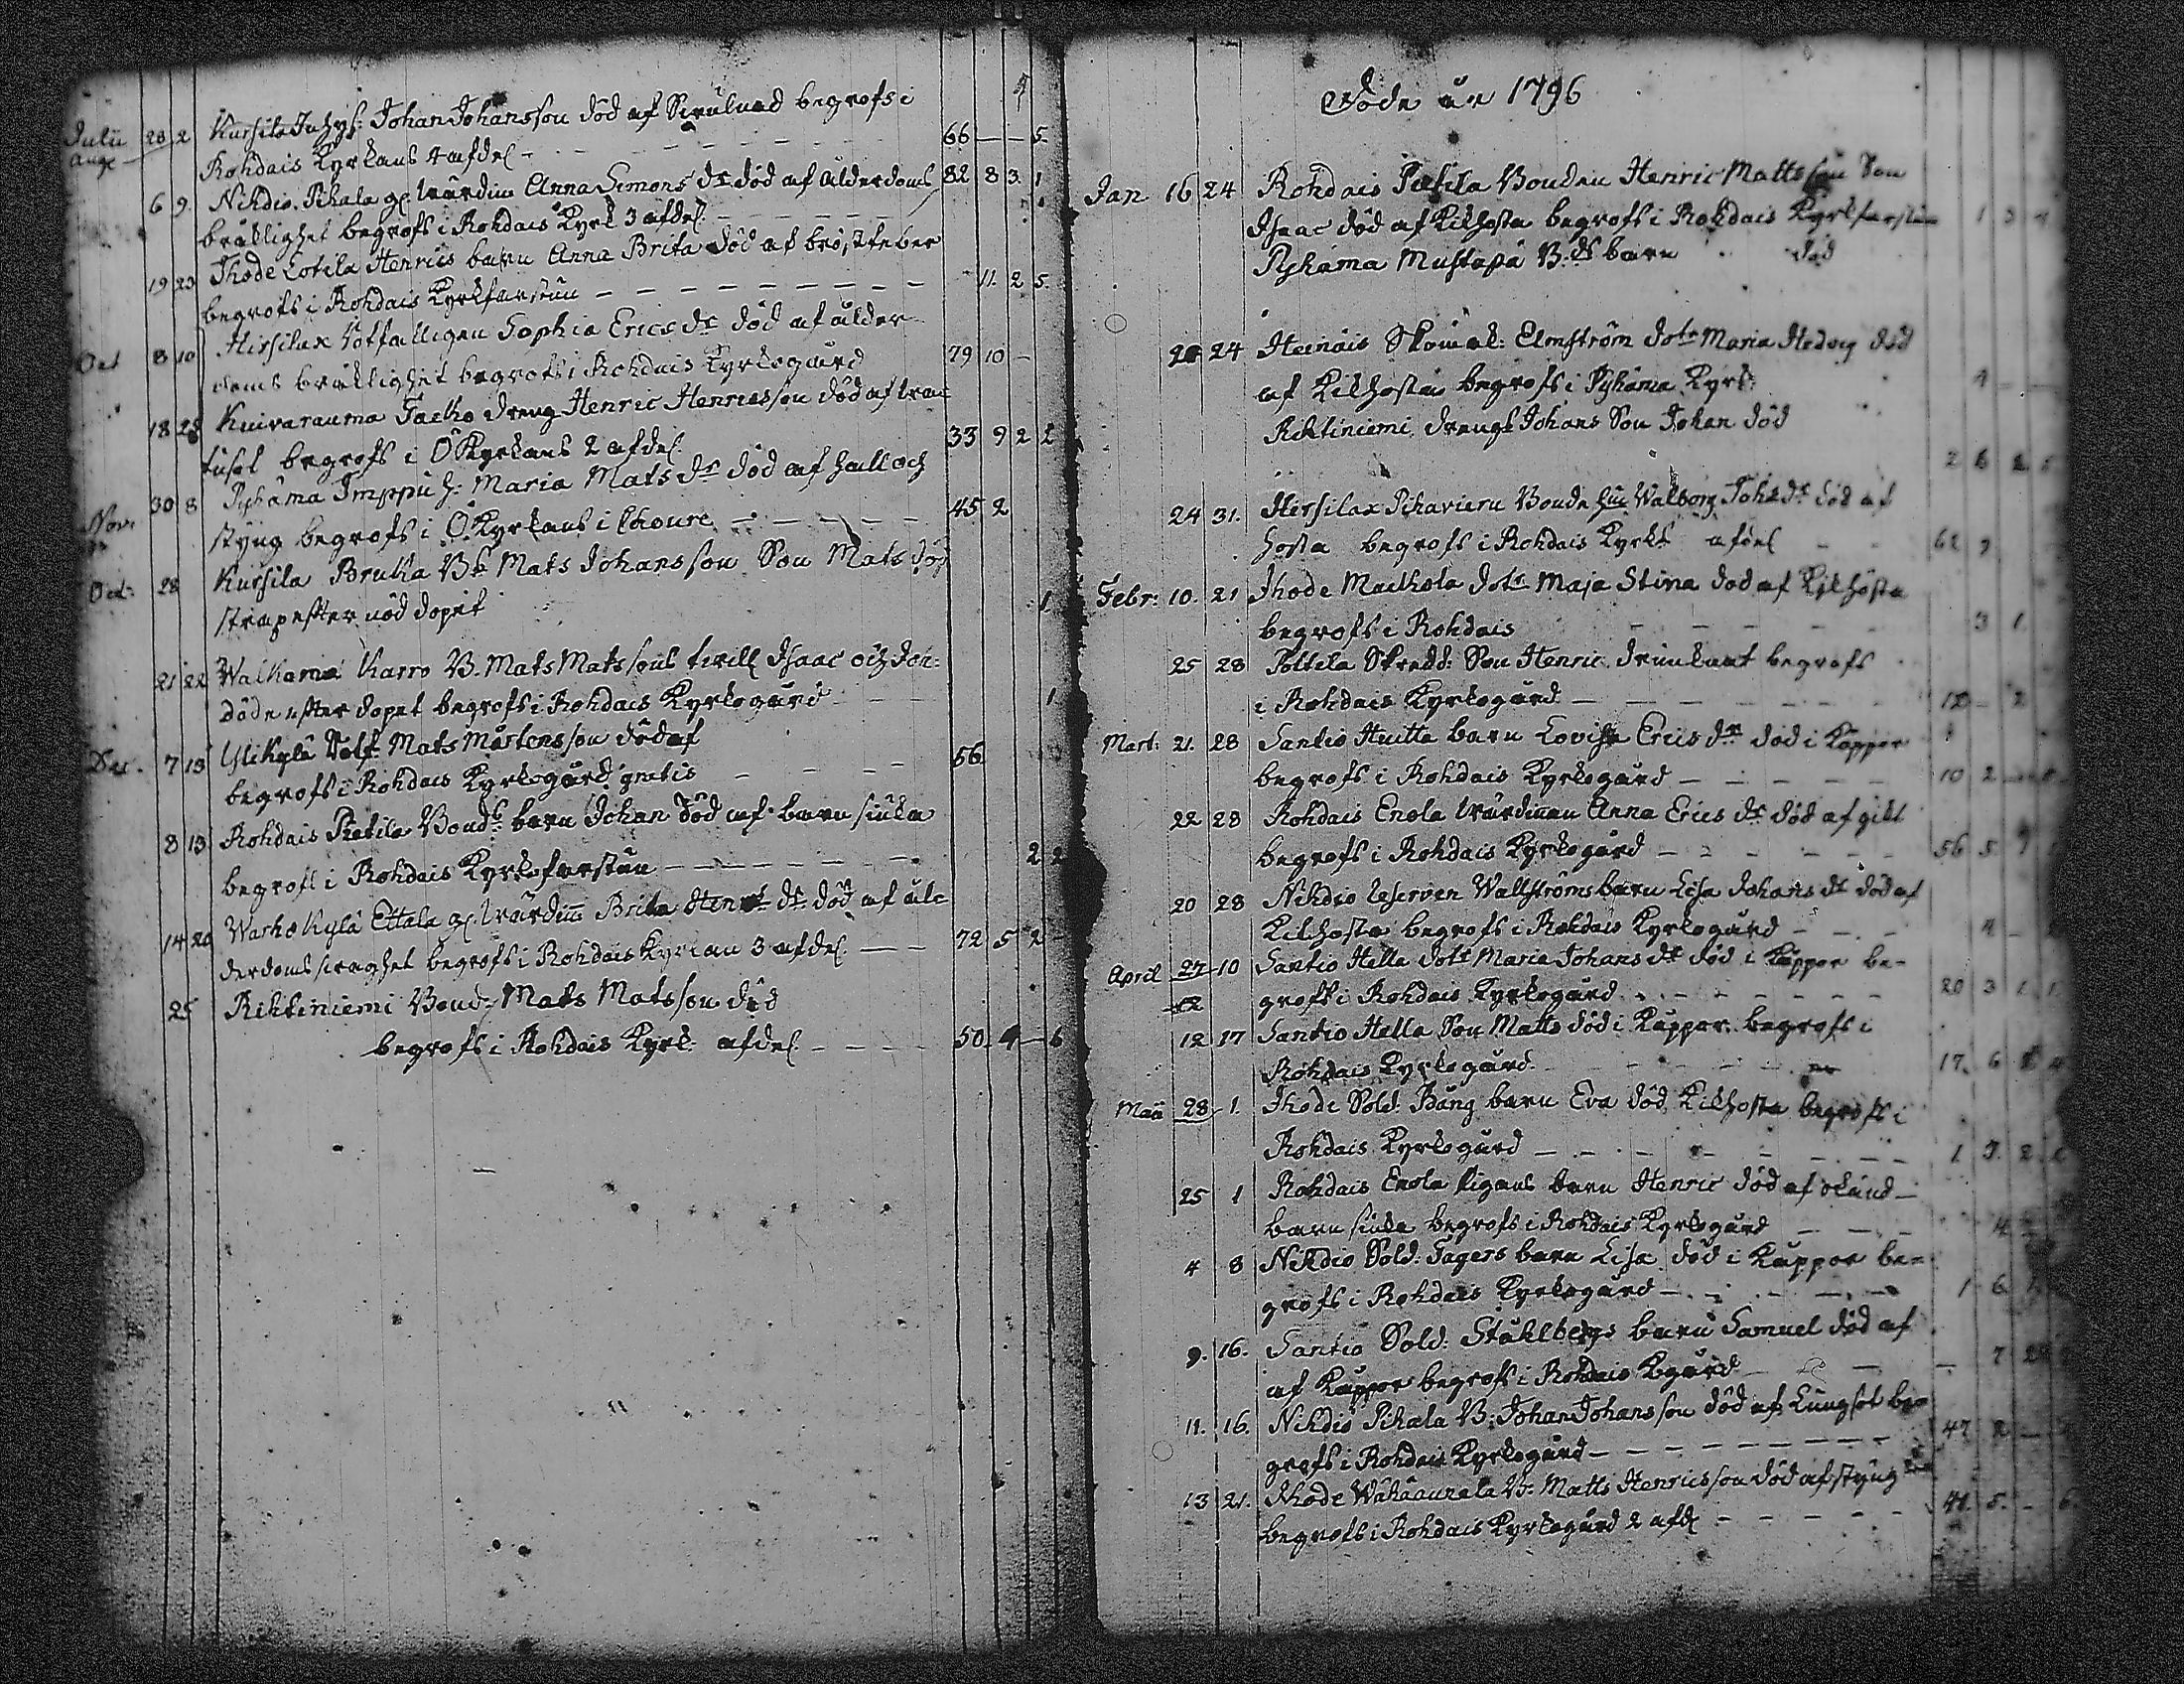 Julii 28 2 Kursila Inhys: Johan Johansson död af begrofs i
Aug Rohdais Kyrkans 4 afdel 66 — — 5
6 9 Nihdio Pihala gl. Wärdin Anna Simons dr död af ålderdoms 82 8 3 1
bräklighet begrofs i Rohdais Kyrk 3 afdel.
19 23 Ihode Eotila Henrics barn Anna Brita död af bröstfeber
begrofs i Rohdais Kyrkfarstun 11 2 5
Oct 8 10 Hirsilax Rotfattigen Sophia Erics dr död af ålder
doms bräklighet begrofs i Rohdais Kyrkogård 79 10 —
18 28 Kuivarauma Jacko dreng Henric Henricsson död af tran
tusot begrofs i Ö Kyrkans 2 afdel. 33 9 2 2
Nov: 30 8 Pyhäma Imppu h: Maria Mats dr död af håll och
styng begrofs i Ö Kyrkans i Choure 45 2
Oct: 28 Kursila Bruka Bde Mats Johansson Son Mats död
strax efter nöddopet 1
21 22 Walkama Karro B. Mats Matssons twill Isaac och Joh:
döde efter dopet begrofs i Rohdais Kyrkogård 1
Dec. 7 13 Ylikylä Sold Mats Mårtensson död af
begrofs i Rohdais Kyrkogård gratis 56
8 13 Rohdais Pietila Bonds barn Johan död af barnsiuka
begrofs i Rohdais Kyrkofarstun 2 2
14 20 Warhokylä Ettala gl. Wärdin Brita Henr: dr död af ål-
derdoms swaghet begrofs i Rohdais Kyrkan 3 afdel. 72 5 2
25 Rihtiniemi Bond: Mats Matsson död
begrofs i Rohdais Kyrk: afdel 50 4 — 6
Döde år 1796
Jan 16 24 Rohdais Pietila Bonden Henric Mattsson Son
Isaac död af Kikhosta begrofs i Rohdais Kyrkfarstun 1 3
Pyhäma Mustapä B:ds barn död
24 Heinäis Skomak: Elmström dotr Maria Hedvig död
af Kikhosta begrofs i Pyhäma Kyrk: 4 —
Rihtiniemi drengs Johans Son Johan död
2 6 2 5
24 31. Hersilax Pihavieru Bonde hu Walborg Johs dr död af
hosta begrofs i Rohdais Kyrks afdel 62 9
Febr: 10. 21 Ihode Maikola dotr Maja Stina död af Kikhosta
begrofs i Rohdais 3 1
25 28 Poltela Skredd: Son Henric drunknat begrofs
i Rohdais Kyrkogård 18 — 2
Mart: 21. 28 Santio Huitta barn Lovisa Erics dr död i Koppor
begrofs i Rohdais Kyrkogård 10 2
22 28 Rohdais Enola Wärdinnan Anna Erics dr död af gikt
begrofs i Rohdais Kyrkogård 56 5 9
20 28 Nihdio Reserven Wallströms barn Lisa Johans dr död af
Kikhosta begrofs i Rohdais Kyrkogård 4
April 27 10 Santio Helle dotr Maria Johans dr död i Koppor be-
grofs i Rohdais Kyrkogård 20 3 1 1
12 17 Santio Helle Son Matts död i Koppor begrofs i
Rohdais Kyrkogård 17. 6
Maii 28 1. Ihode Sold: Bång barn Eva död Kikhosta begrofs i
Rohdais Kyrkogård 1 9 2
25 1 Rohdais Enola Pigans barn Henric död af okänd
barnsiuka begrofs i Rohdais Kyrkogård 4
4 8 Nihdio Sold: Jagers barn Lisa död i Koppor be-
grofs i Rohdais Kyrkogård 1 6
9. 16. Santio Sold: Ståhlbergs barn Samuel död af
af Koppor begrofs i Rohdais Kgård — 7
11. 16. Nihdio Pihala B: Johan Johansson död af Lungsot be-
grofs i Rohdais Kyrkogård 47 2
13 21. Ihode Wähäaunala B: Matts Henricsson död af styng
begrofs i Rohdais Kyrkogård 2 afd 41. 5. — 6